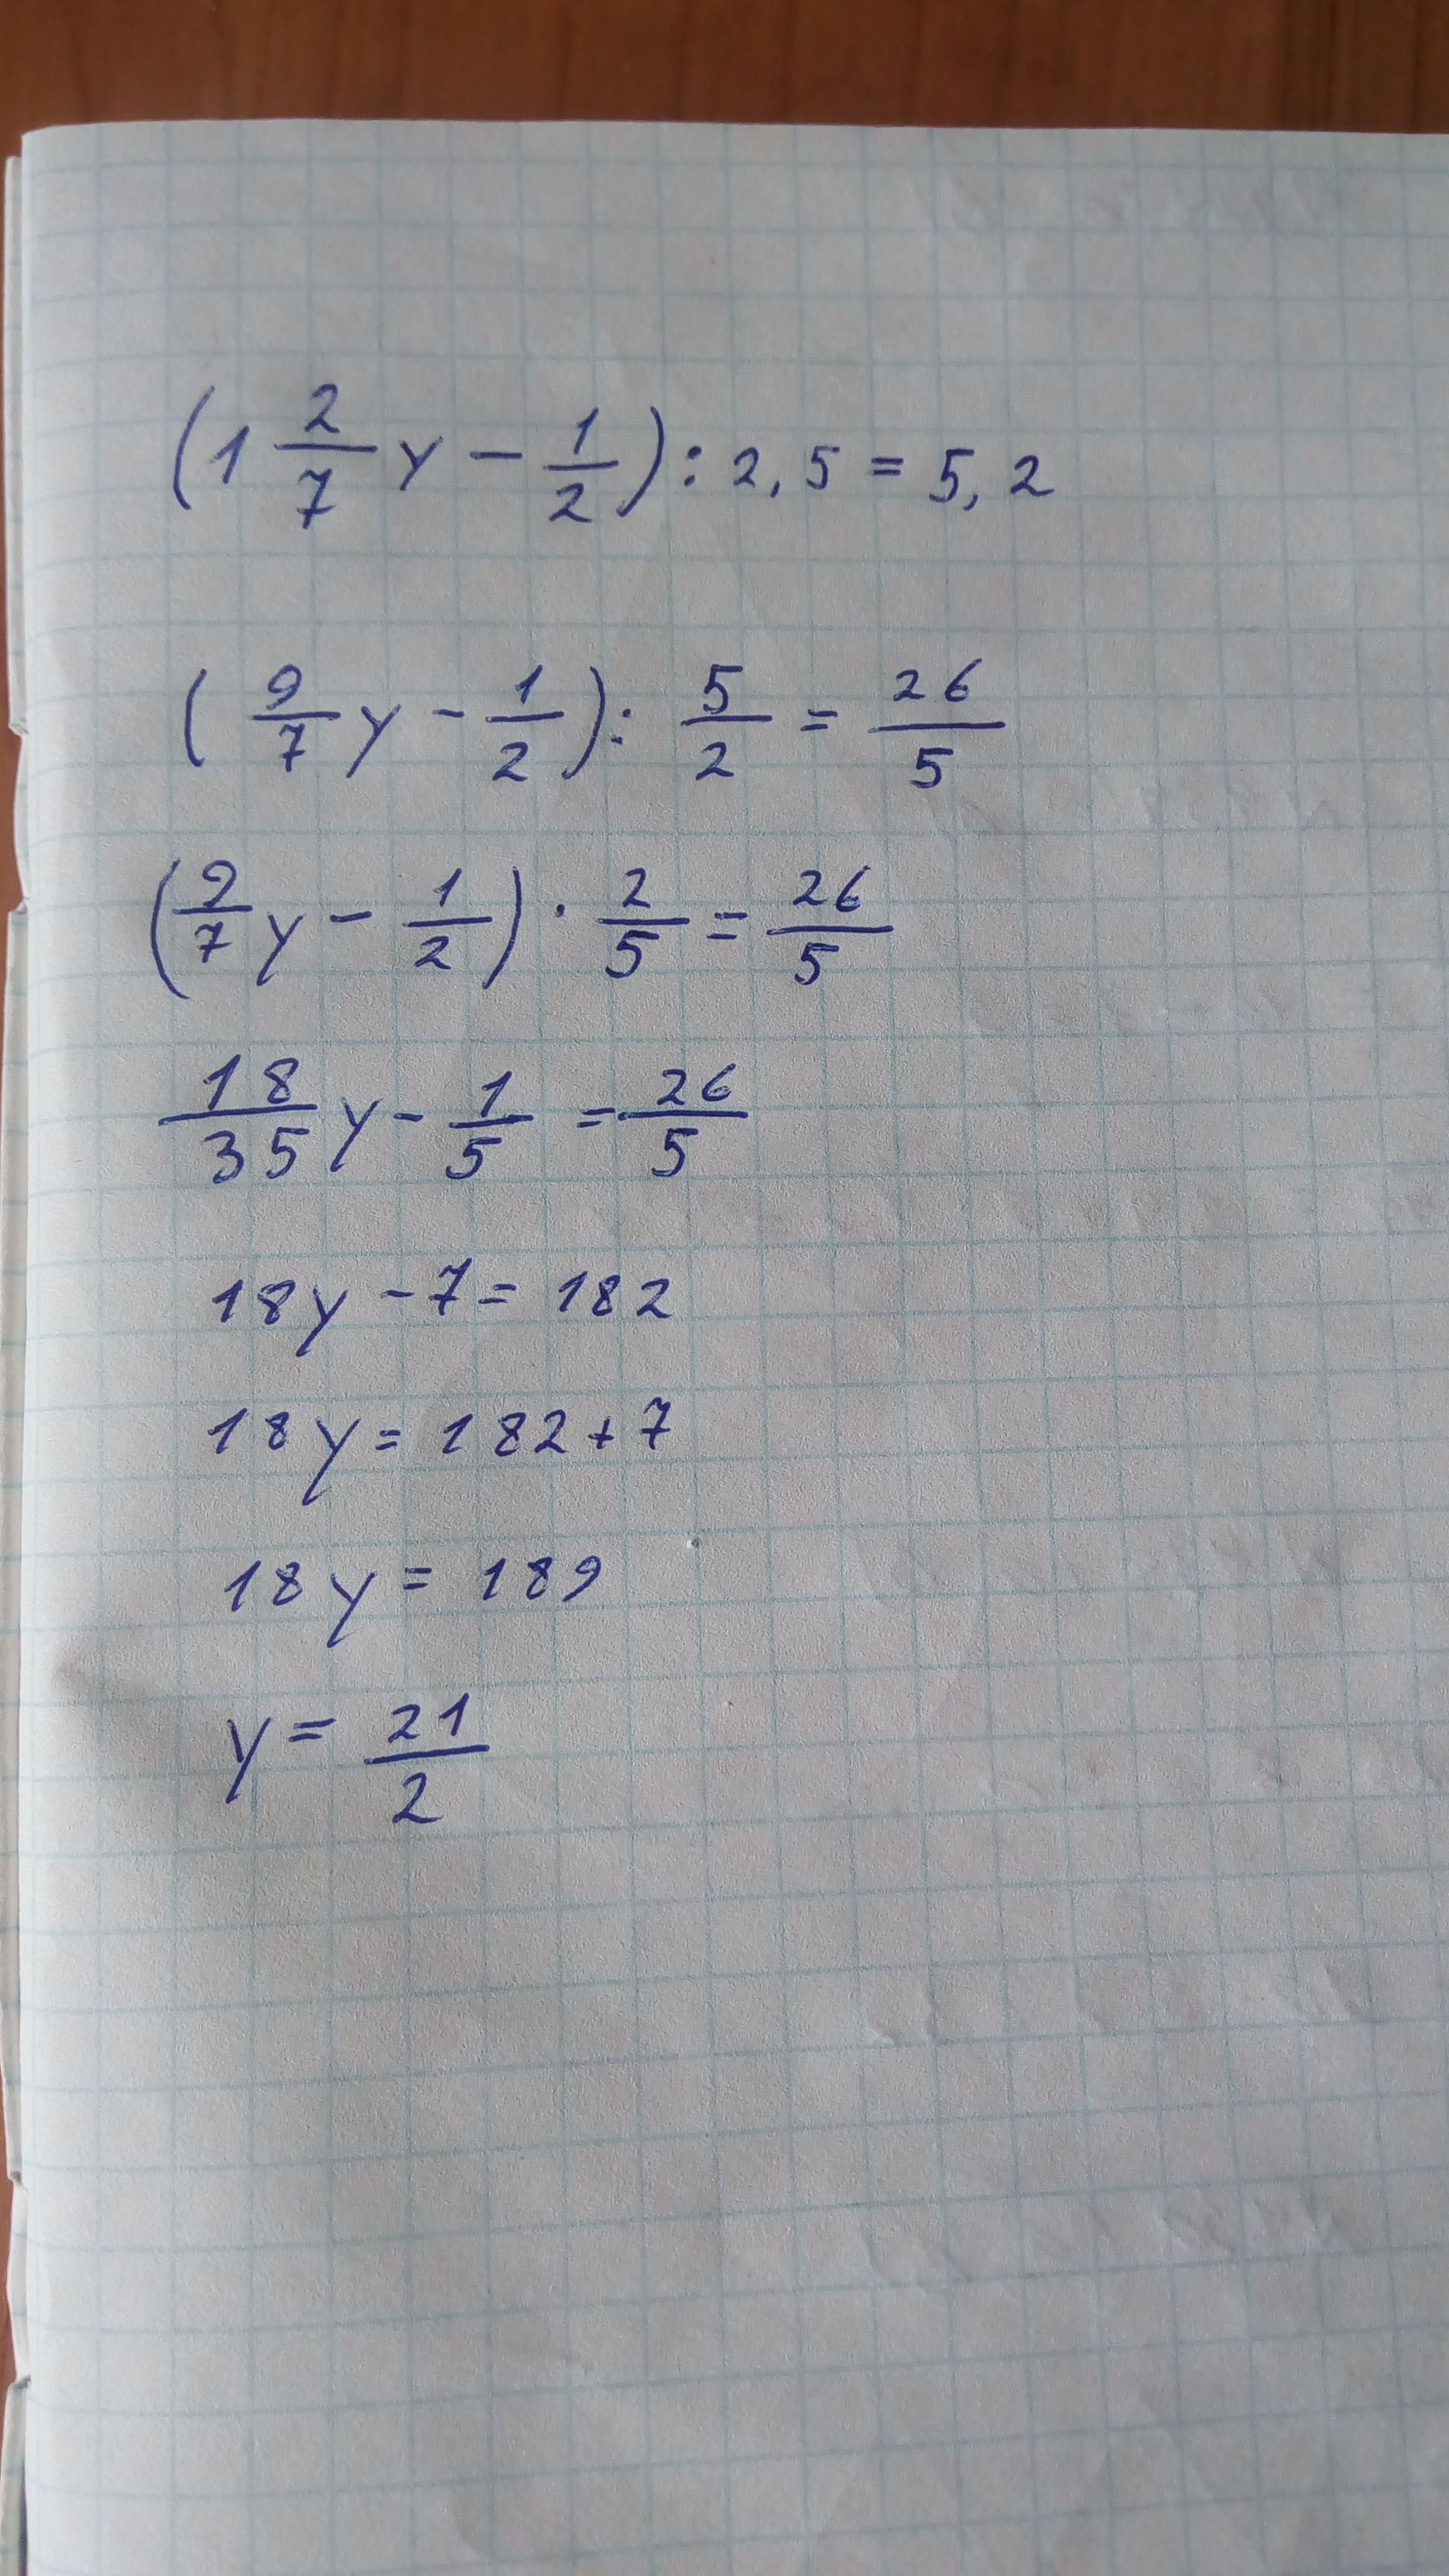 (1 2/7 y - 1/2) : 2,5 = 5,2
(9/7 y - 1/2) : 5/2 = 26/5
(9/7 y - 1/2) · 2/5 = 26/5
18/35 y - 1/5 = 26/5
18y - 7 = 182
18y = 182 + 7
18y = 189
y = 21/2